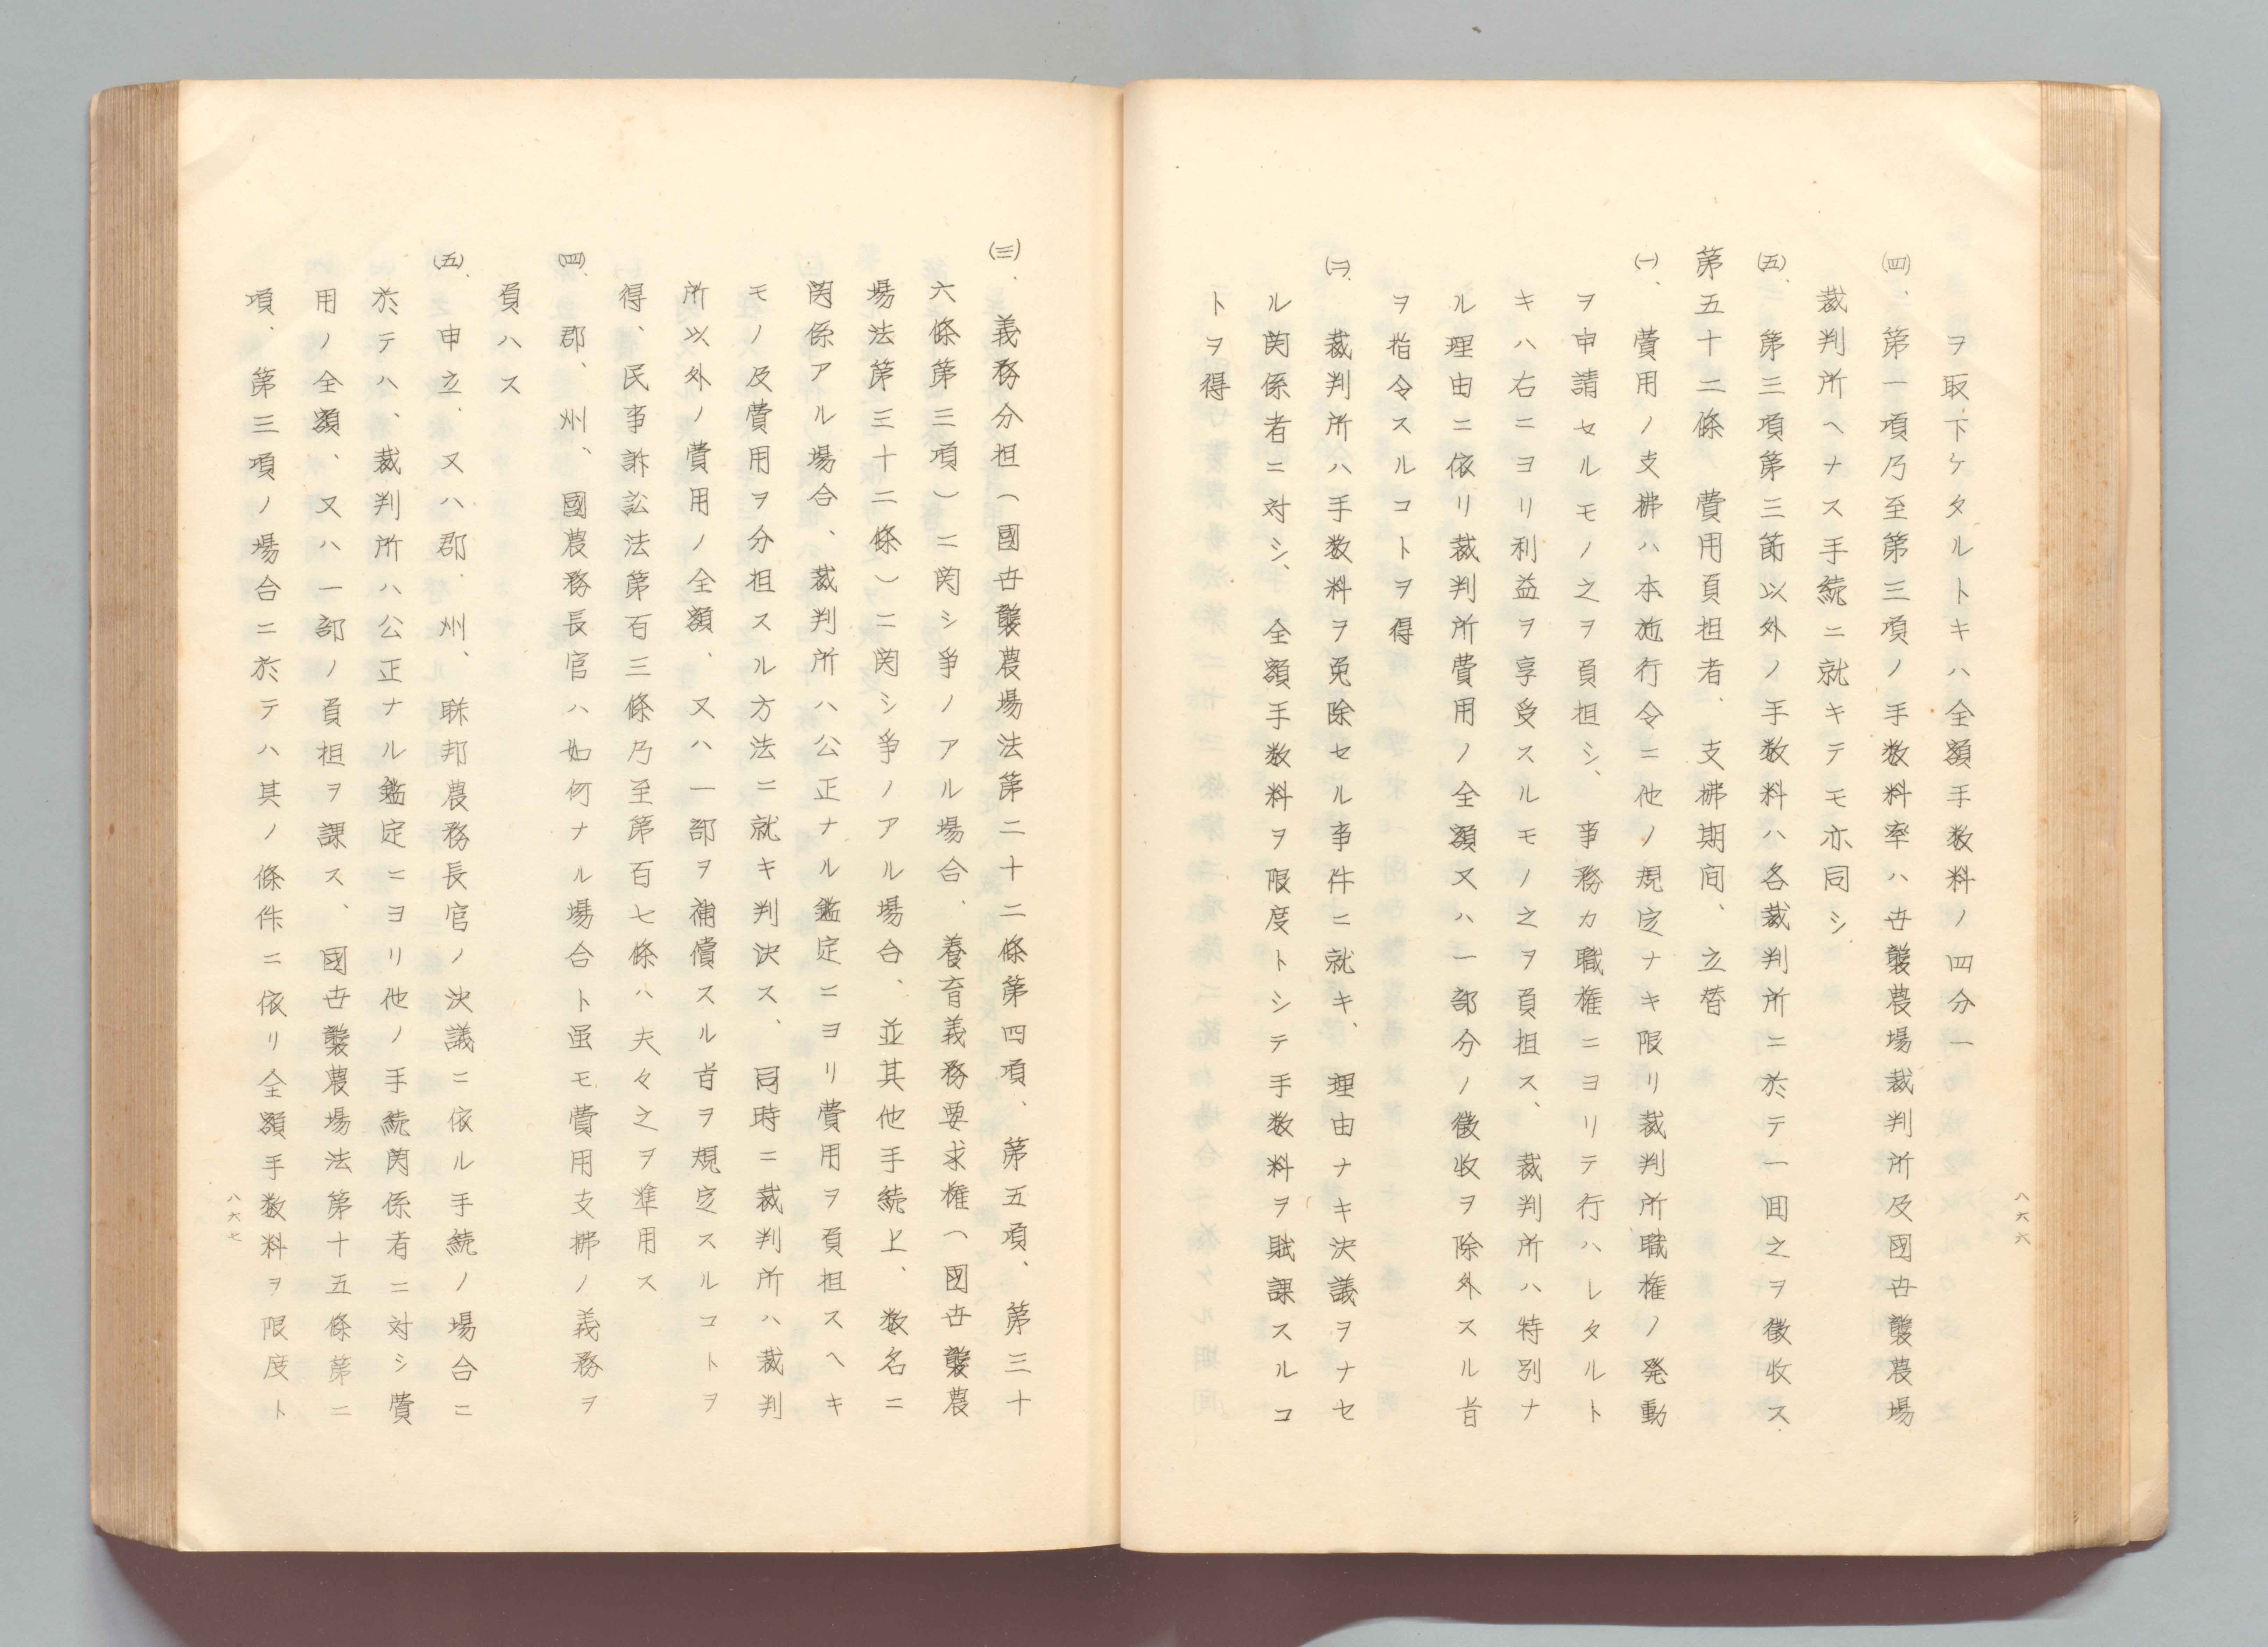 ヲ取下ケタルトキハ全額手数料ノ四分一
㈣、第一項乃至第三項ノ手数料率ハ世襲農場裁判所及國世襲農場
裁判所ヘナス手続ニ就キテモ亦同シ
㈤、第三項第三節以外ノ手数料ハ各裁判所ニ於テ一囬之ヲ徴收ス
第五十二條　費用負担者、支拂期间、立替
㈠、費用ノ支拂ハ本施行令ニ他ノ規定ナキ限リ裁判所職権ノ発動
ヲ申請セルモノ之ヲ負担シ、事務カ職権ニヨリテ行ハレタルト
キハ右ニヨリ利益ヲ享受スルモノ之ヲ負担ス、裁判所ハ特別ナ
ル理由ニ依リ裁判所費用ノ全額又ハ一部分ノ徴收ヲ除外スル旨
ヲ指令スルコトヲ得
㈡、裁判所ハ手数料ヲ免除セル事件ニ就キ、理由ナキ決議ヲナセ
ル関係者ニ対シ、全額手数料ヲ限度トシテ手数料ヲ賦課スルコ
トヲ得
八六六
㈢、義務分担（國世襲農場法第二十二條第四項、第五項、第三十
六條第三項）ニ関シ争ノアル場合、養育義務要求権（國世襲農
場法第三十二條）ニ関シ争ノアル場合、並其他手続上、数名ニ
関係アル場合、裁判所ハ公正ナル鑑定ニヨリ費用ヲ負担スヘキ
モノ及費用ヲ分担スル方法ニ就キ判決ス、同時ニ裁判所ハ裁判
所以外ノ費用ノ全額、又ハ一部ヲ補償スル旨ヲ規定スルコトヲ
得、民事訴訟法第百三條乃至第百七條ハ夫々之ヲ準用ス
㈣、郡、州、國農務長官ハ如何ナル場合ト虽モ費用支拂ノ義務ヲ
負ハス
㈤、申立、又ハ郡、州、聨邦農務長官ノ決議ニ依ル手続ノ場合ニ
於テハ、裁判所ハ公正ナル鑑定ニヨリ他ノ手続関係者ニ対シ費
用ノ全額、又ハ一部ノ負担ヲ課ス、國世襲農場法第十五條第二
項、第三項ノ場合ニ於テハ其ノ條件ニ依リ全額手数料ヲ限度ト
八六七